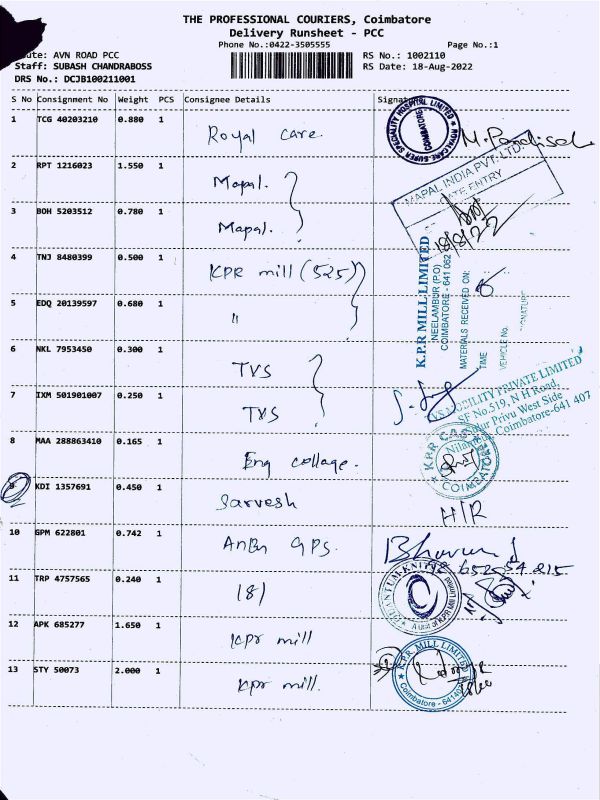 THE PROFESSIONAL COURIERS, Coimbatore
Delivery Runsheet - PCC
Phone No.:0422-3505555
Page No.:1
ute: AVN ROAD PCC
RS No.: 1002110
Staff: SUBASH CHANDRABOSS
RS Date: 18-Aug-2022
DRS No.: DCJB100211001
S No Consignment No Weight PCS Consignee Details Signat
1 TCG 40203210 0.880 1 Royal care.
ROYAL CARE SUPER SPECIALITY HOSPITAL LIMITED
COIMBATORE
2 RPT 1216023 1.550 1 Mapal.
MAPAL INDIA PVT. LTD.
GATE ENTRY
18/8/22
3 BOH 5203512 0.780 1 Mapal.
4 TNJ 8480399 0.500 1 KPR mill (525)
K.P.R MILL LIMITED
NEELAMBUR (P.O)
COIMBATORE - 641 062
MATERIALS RECEIVED ON:
TIME
VEHICLE No.
SIGNATURE
5 EDQ 20139597 0.680 1 "
6 NKL 7953450 0.300 1 TVS
7 IXM 501901007 0.250 1 TVS
TVS MOBILITY PRIVATE LIMITED
SF No.519, N H Road,
Privu West Side
Coimbatore-641 407
8 MAA 288863410 0.165 1 Eng collage.
K P R CAS
COIMBATORE
9 KDI 1357691 0.450 1 Sarvesh
H/R
10 GPM 622801 0.742 1 AnBu GPS.
11 TRP 4757565 0.240 1 181
QUANTUM KNITS
A unit of KPR Mill Limited
12 APK 685277 1.650 1 kpr mill
13 STY 50073 2.000 1 kpr mill.
K.P.R MILL LIMITED
Coimbatore - 641407